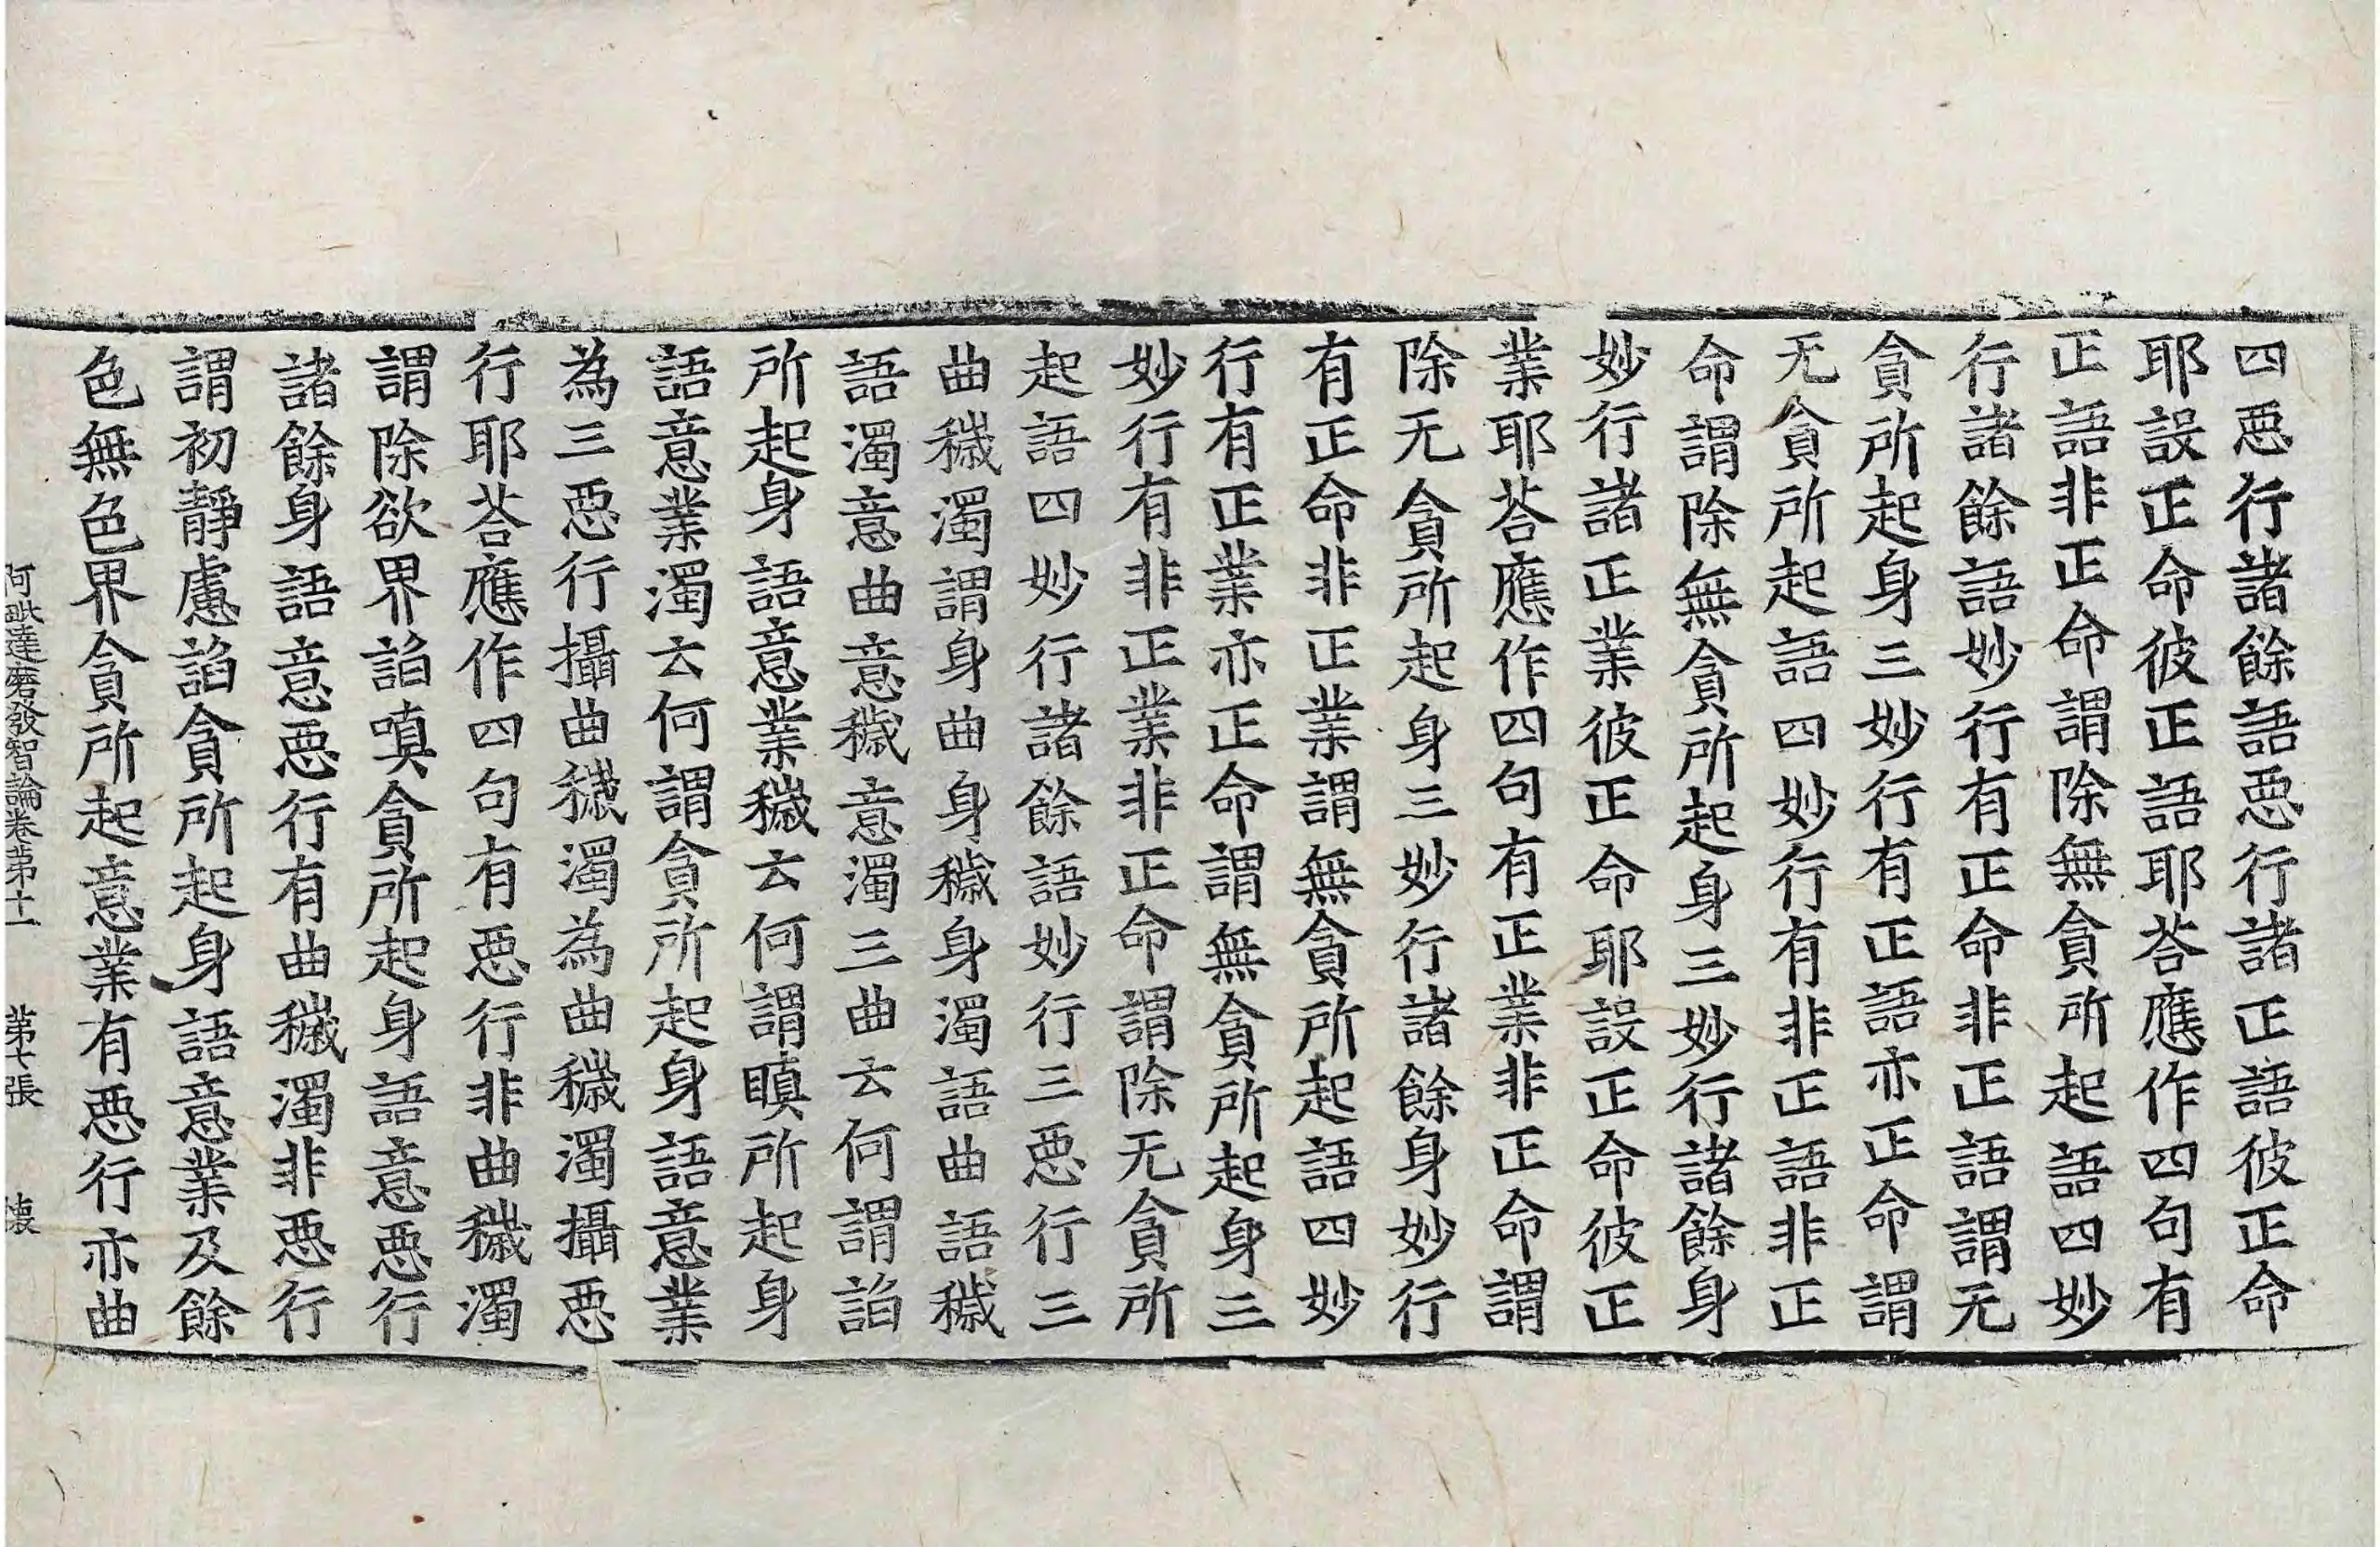 四惡行諸餘語惡行諸正語彼正命
耶設正命彼正語耶荅應作四句有
正語非正命謂除無貪所起語四妙
行諸餘語妙行有正命非正語謂无
貪所起身三妙行有正語亦正命謂
无貪所起語四妙行有非正語非正
命謂除無貪所起身三妙行諸餘身
妙行諸正業彼正命耶設正命彼正
業耶荅應作四句有正業非正命謂
除无貪所起身三妙行諸餘身妙行
有正命非正業謂無貪所起語四妙
行有正業亦正命謂無貪所起身三
妙行有非正業非正命謂除无貪所
起語四妙行諸餘語妙行三惡行三
曲穢濁謂身曲身穢身濁語曲語穢
語濁意曲意穢意濁三曲云何謂諂
所起身語意業穢云何謂瞋所起身
語意業濁云何謂貪所起身語意業
為三惡行攝曲穢濁為曲穢濁攝惡
行耶荅應作四句有惡行非曲穢濁
謂除欲界諂嗔貪所起身語意惡行
諸餘身語意惡行有曲穢濁非惡行
謂初靜慮諂貪所起身語意業及餘
色無色界貪所起意業有惡行亦曲
阿毗達磨發智論卷第十一 第七張